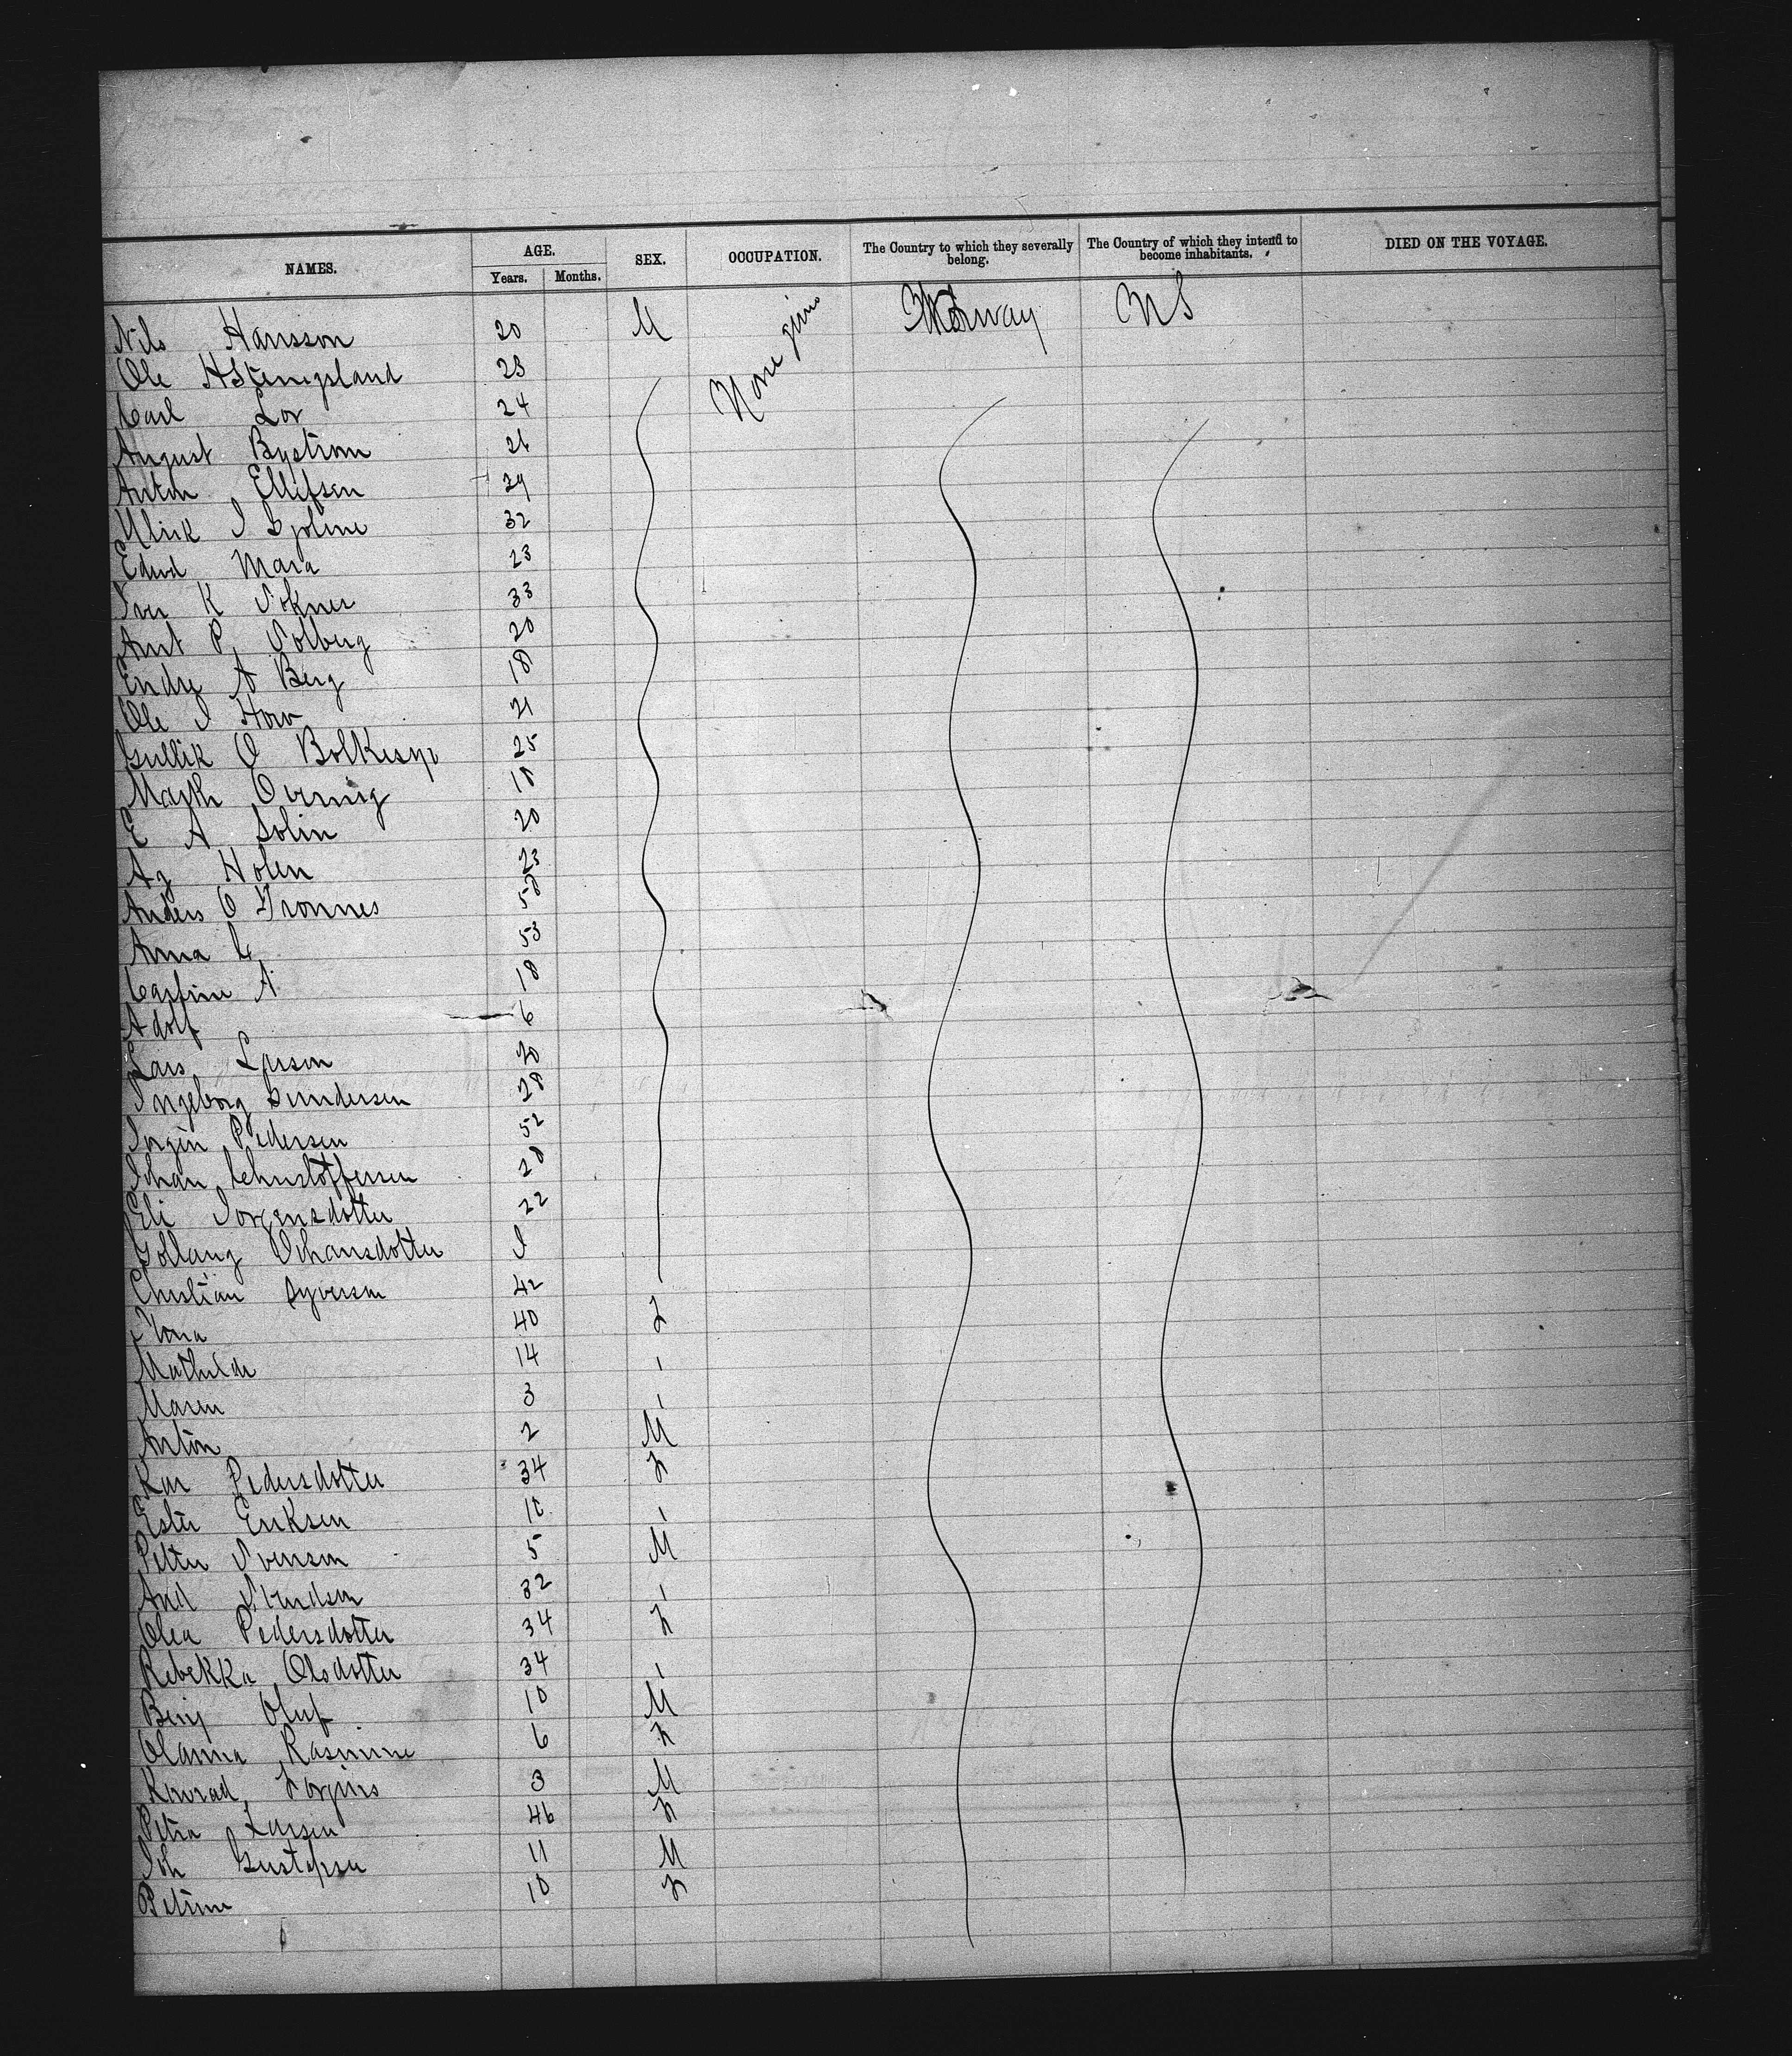 NAMES. AGE. SEX. OCCUPATION. The Country to which they severally belong. The Country of which they intend to become inhabitants. DIED ON THE VOYAGE.
Years. Months.
Nils Hansson 20 M None given Norway US
Ole H 23
Carl Lov 24
August Bystrom 26
Anton Ellifsen 29
Ulrik I 32
Edwd Mara 23
Iver K 33
Arnt P Solberg 20
Endre A Berg 18
Ole I Hove 21
Gullik O Bolkesjo 25
Overvig 18
E A Solin 20
Ag Holen 23
Anders O Tronnes 58
Anna C 53
A 18
Adolf 6
Lars Larson 20
Ingeborg Gundersen 28
Jorgen Pedersen 52
Johan Christoffersen 28
Eli Jorgensdotter 22
Johansdotter 1
Christian Syversen 42
40 F
Mathilde 14 "
Maren 3 "
Anton 2 M
Kar Pedersdotter 34 F
Ester Eriksen 10 "
Petter Svensen 5 M
And 32 "
Olea Pedersdotter 34 F
Rebekka Olsdotter 34 "
Benj Oluf 10 M
Olanna Rasmine 6 F
Konrad 3 M
Petra Larsen 46 F
Joh Gustafsen 11 M
Petrine 10 F